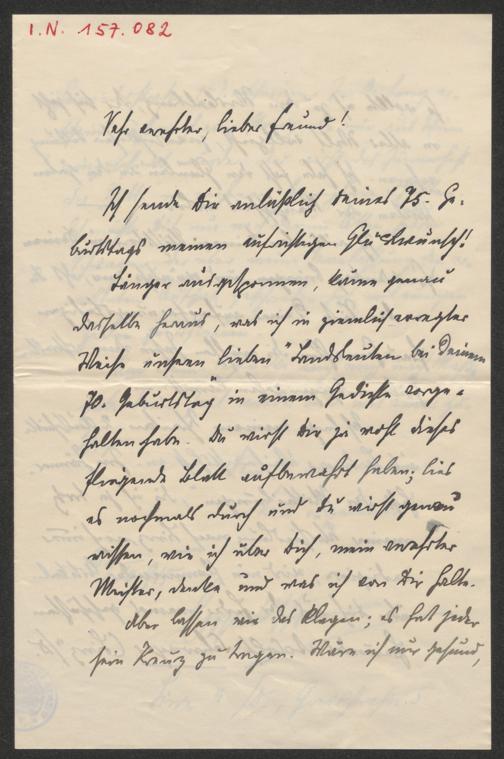 I.N. 157.082
Sehr verehrter, lieber Freund!
Ich sende Dir anläßlich Deines 75. Ge-
burtstags meinen aufrichtigen Glückwunsch!
Länger ausgesponnen, käme genau
dasselbe heraus, was ich in ziemlich erregter
Weise unsern lieben "Landsleuten bei Deinem
70. Geburtstag" in einem Gedichte vorge-
halten habe. Du wirst Dir ja wohl dieses
fliegende Blatt aufbewahrt haben; lies
es nochmals durch und Du wirst genau
wissen, wie ich über Dich, mein verehrter
Meister, denke und was ich von Dir halte.
Aber lassen wir das Klagen; es hat jeder
sein Kreuz zu tragen. Wäre ich nur gesund,